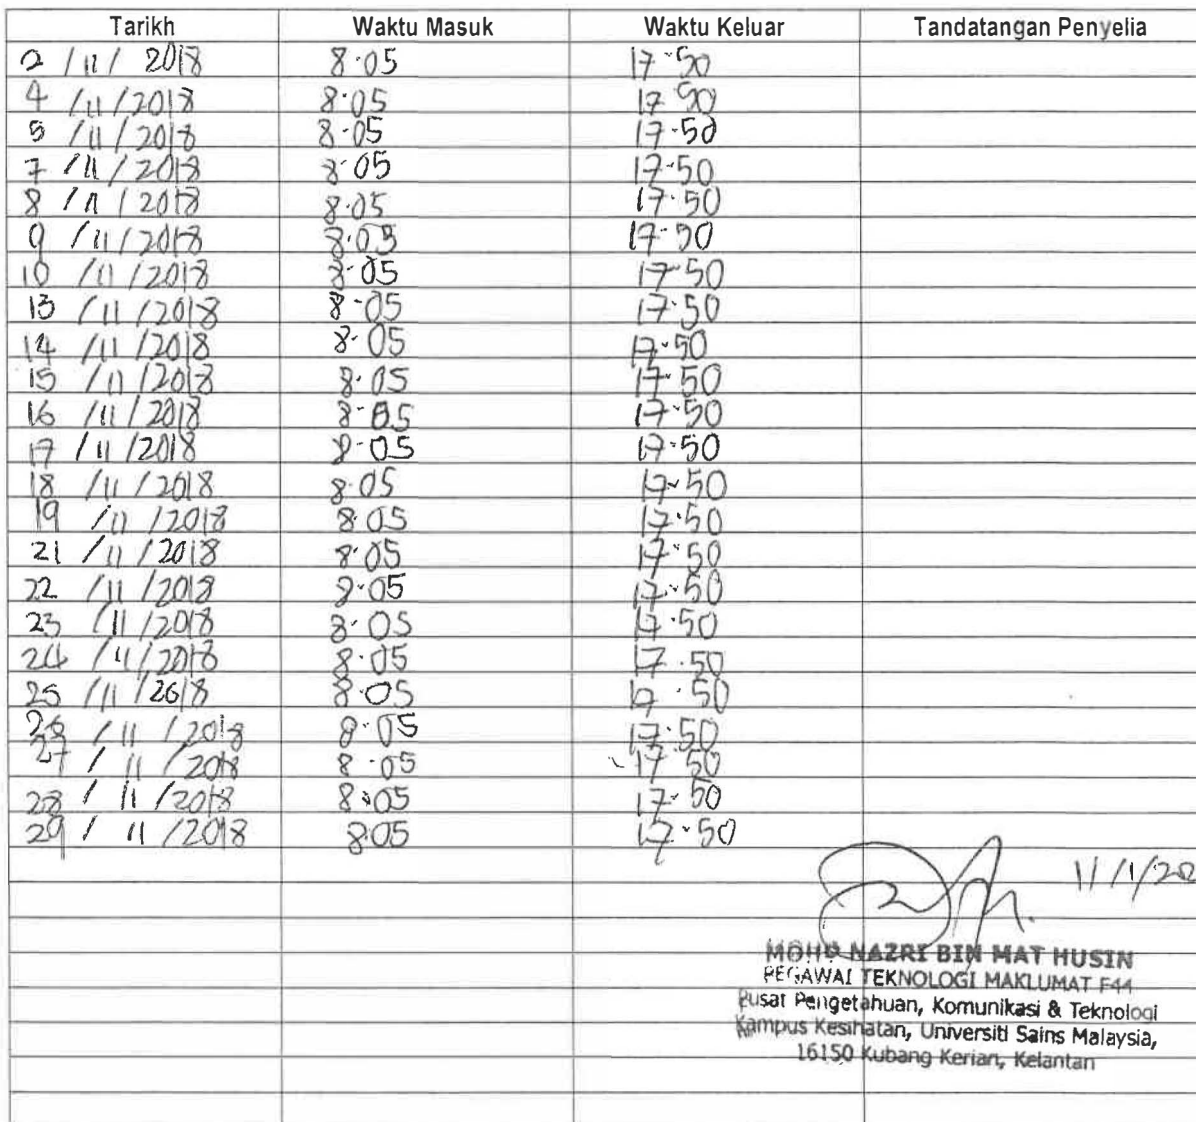 Tarikh Waktu Masuk Waktu Keluar Tandatangan Penyelia
2 /11/ 2018 8.05 17.50
4 /11/2018 8.05 17.50
5 /11/2018 8.05 17.50
7 /11/2018 8.05 17.50
8 /11/2018 8.05 17.50
9 /11/2018 8.05 17.50
10 /11/2018 8.05 17.50
13 /11/2018 8.05 17.50
14 /11/2018 8.05 17.50
15 /11/2018 8.05 17.50
16 /11/2018 8.05 17.50
17 /11/2018 8.05 17.50
18 /11/2018 8.05 17.50
19 /11/2018 8.05 17.50
21 /11/2018 8.05 17.50
22 /11/2018 8.05 17.50
23 /11/2018 8.05 17.50
24 /11/2018 8.05 17.50
25 /11/2018 8.05 17.50
26 /11/2018 8.05 17.50
27 / 11 /2018 8.05 17.50
28 / 11 /2018 8.05 17.50
29 / 11 /2018 8.05 17.50
11/1/20
MOHD NAZRI BIN MAT HUSIN
PEGAWAI TEKNOLOGI MAKLUMAT F44
Pusat Pengetahuan, Komunikasi & Teknologi
Kampus Kesihatan, Universiti Sains Malaysia,
16150 Kubang Kerian, Kelantan